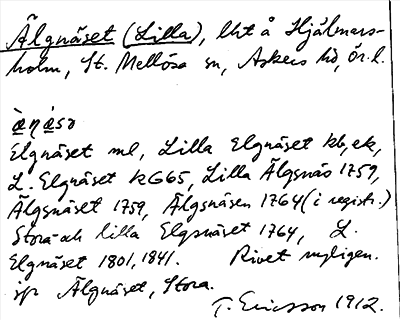 Älgnäset (Lilla), lht å Hjälmars-
holm, St. Mellösa sn, Askers hd, Ör. l.
Elgnäset ml, Lilla Elgnäset kb, ek,
L. Elgnäset KG65, Lilla Älgsnäs 1759,
Älgsnäset 1759, Älgsnäsen 1764 (i registr.)
Stora och lilla Elgsnäset 1764, L.
Elgnäset 1801, 1841. Rivet nyligen.
jfr Älgnäset, Stora.
T. Ericsson 1912.